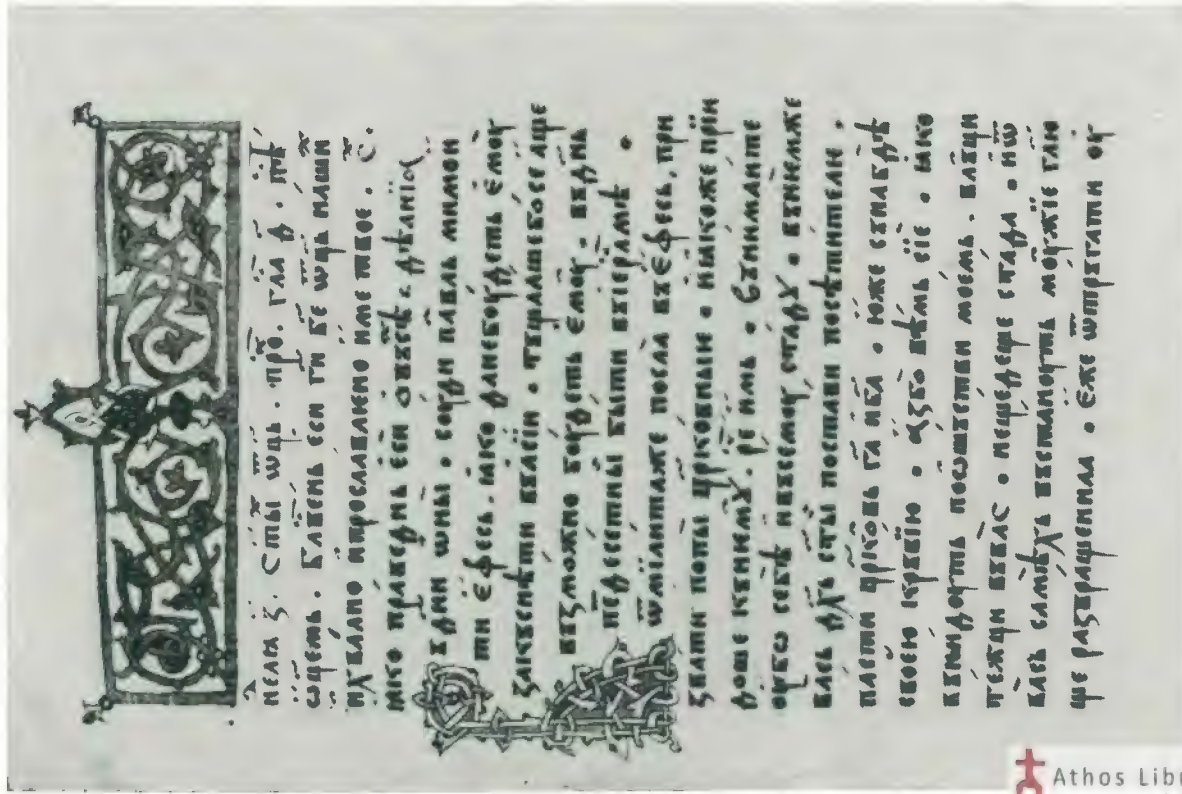 недѣлѧ з҃. ст҃ы ѡ҃ць. про҃. гла҃ д҃. пѣ҃
ѡ҃цемь. Бл҃вень еси г҃и б҃е ѡ҃ць наши
и хвално ипрославлено име твое. с҃.
ꙗко праведнь еси ѡвсѣ҃. дѣꙗнїа
ѡны. соуди павль мимои
ти ефесь. ꙗко данебоудеть емоу
закьснѣти вьасїи. тъщашебосе аще
възможно боудеть емоу. вьднь
пе҃десетны быти вьїер҃лмѣ.
ѿмїлитаже посла вьефесь. при
зꙋвати попы цр҃ковныѥ. ꙗкоже прїи
доше кьнимꙋ. ре҃ нимь. Вънимаите
оубѡ себѣ ивсемоу стадꙋ. вънемже
вась дх҃ь ст҃ы постави посѣтители.
пасти цр҃ковь га҃ иб҃а. юже сънабдѣ
своею кръвїю. азбо вѣмь сїе. ꙗко
вънидоуть поѡшьствїи моемь. вльци
тежци въвас. нещедеще стада. иѡ
вась самѣхь въстаноуть моужїе гл҃ю
ще развращеннаа. еже ѿтръгати оу
Athos Libr